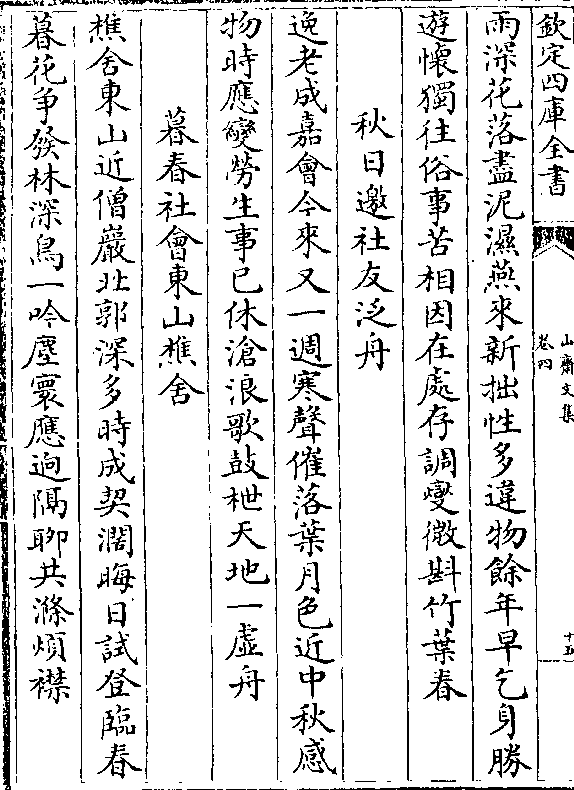 欽定四庫全書
山齋文集
卷四
十五
雨深花落盡泥濕燕來新拙性多違物餘年早乞身勝
遊懷獨往俗事苦相因在處存調燮微斟竹葉春
秋日邀社友泛舟
逸老成嘉會今來又一週寒聲催落葉月色近中秋感
物時應變勞生事已休滄浪歌鼓枻天地一虛舟
暮春社會東山樵舍
樵舍東山近僧巖北郭深多時成契濶晦日試登臨春
暮花争發林深鳥一吟塵寰應逈隔聊共滌煩襟